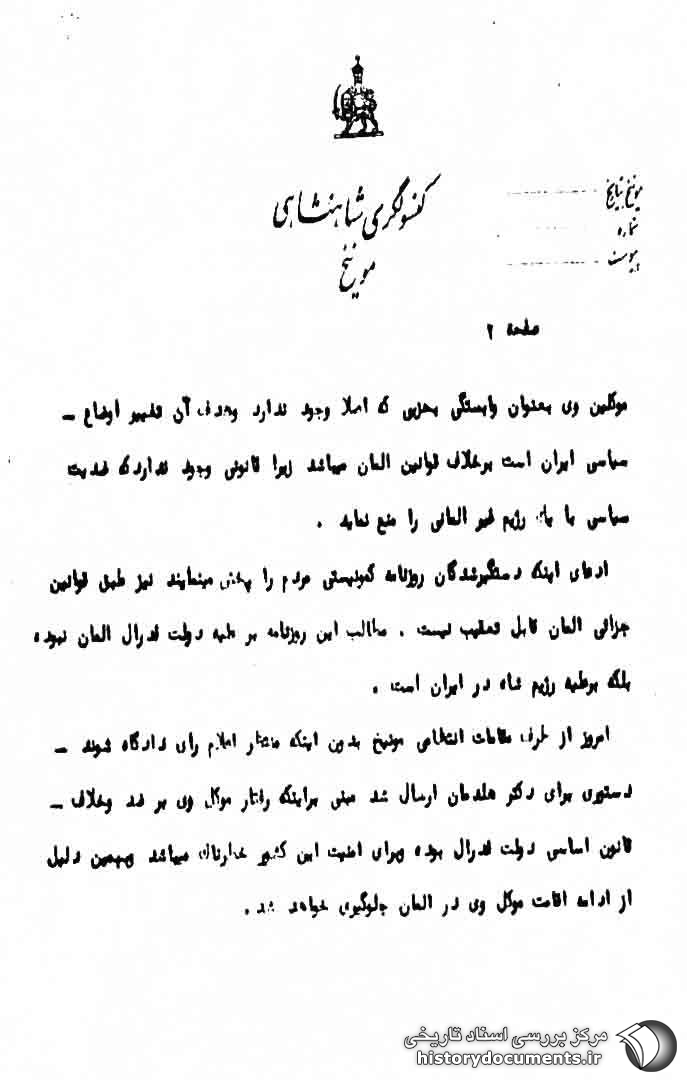 کنسولگری شاهنشاهی
مونیخ
مونیخ بتاریخ
شماره
پیوست
صفحه ۲
موکلین وی بعنوان وابستگی بحزبی که اصلا وجود ندارد وهدف آن تغییر اوضاع –
سیاسی ایران است برخلاف قوانین المان میباشد زیرا قانونی وجود نداردکه ضدیت
سیاسی با یک رژیم غیر المانی را منع نماید .
ادعای اینکه دستگیرشدگان روزنامه کمونیستی مردم را پخش مینمایند نیز طبق قوانین
جزائی المان قابل تعقیب نیست . مطالب این روزنامه بر علیه دولت فدرال المان نبوده
بلکه برعلیه رژیم شاه در ایران است .
امروز از طرف مقامات انتظامی مونیخ بدون اینکه منتظر اعلام رای دادگاه شوند –
دستوری برای دکتر هلدمان ارسال شد مبنی براینکه رفتار موکل وی بر ضد وخلاف –
قانون اساسی دولت فدرال بوده وبرای امنیت این کشور خطرناک میباشد وبهمین دلیل
از ادامه اقامت موکل وی در المان جلوگیری خواهد شد .
مرکز بررسی اسناد تاریخی
historydocuments.ir